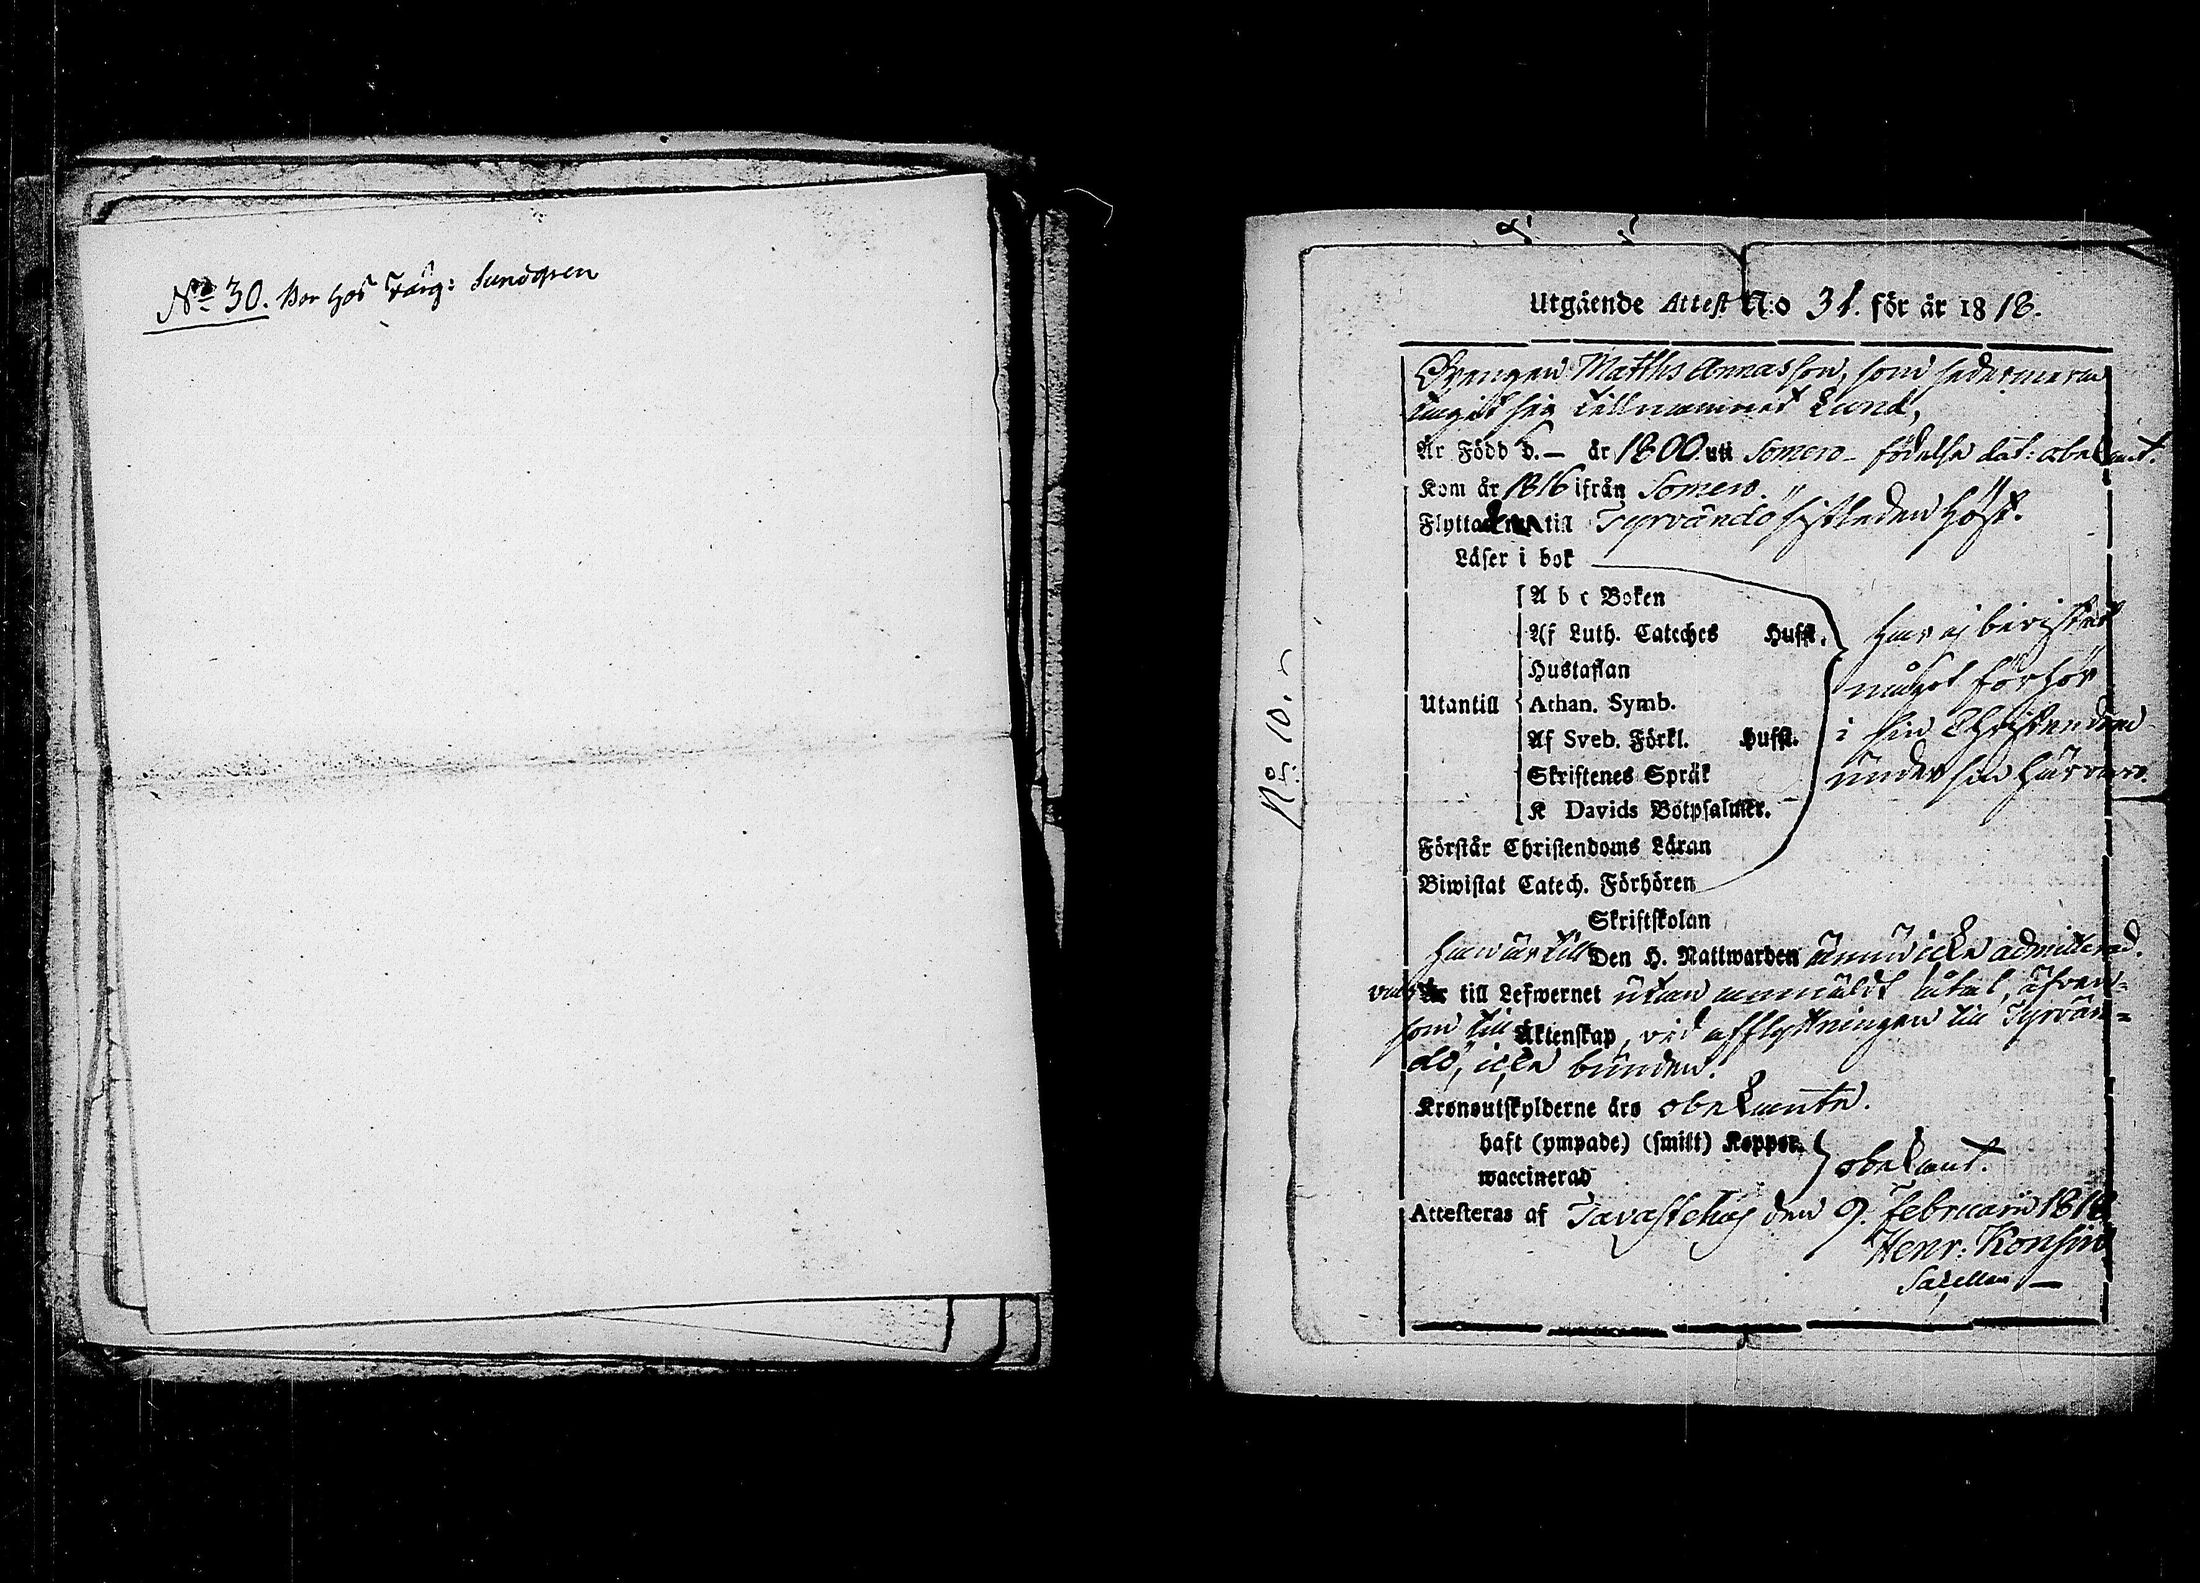 No 30. Bor hos Färg: Sundgren
No 10.
Utgående Attest N:o 31. för år 1818.
Drengen Matths Annasson, som sedermera
tagit sig tillnamnet Lund,
Är Född d. — år 1800 uti Somero – födelse dat: obekant.
Kom år 1816 ifrån Somero.
Flyttade till Tyrvändö sistleden höst.
Läser i bok
A b c Boken
Af Luth. Cateches Hufst.
Hustaflan
Utantill Athan. Symb.
Af Sveb. Förkl. Hufst.
Skriftenes Språk
K Davids Botpsalmer.
har ej bevistat
något förhör
i sin Christendom
under sin härvaro.
Förstår Christendoms Läran
Biwistat Catech. Förhören
Skriftskolan
han är till Den H. Nattwarden ännu icke admitterad.
var till Lefwernet utan anmäldt åtal, äfven-
som till Äktenskap, vid afflyttningen till Tyrvän-
dö, icke bunden.
Kronoutskylderne äro obekante.
haft (ympade) (smitt) Koppor.
waccinerad
obekant.
Attesteras af Tavastehus den 9. Februarii 1818
Henr: Konsin
Sacellan